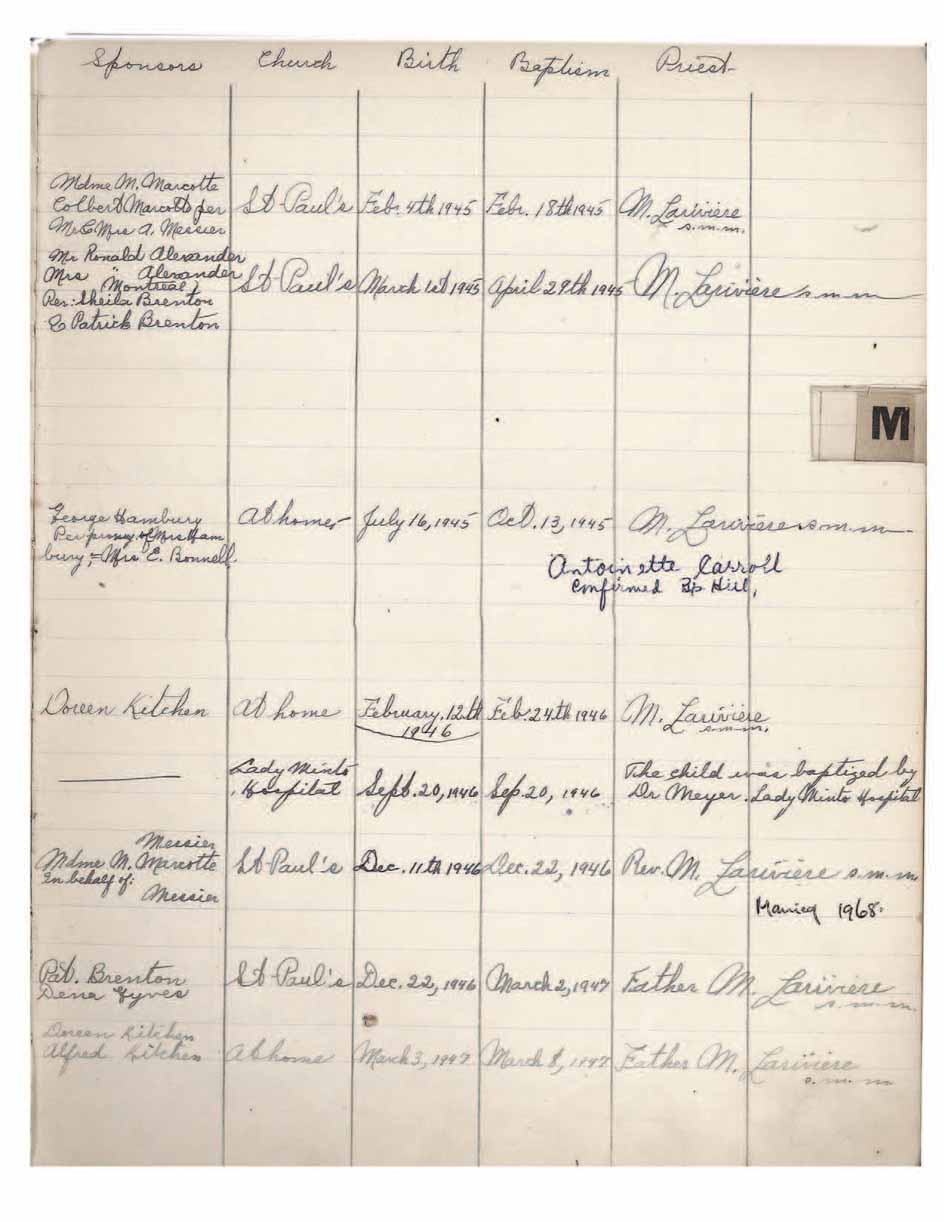 Sponsors Church Birth Baptism Priest
Mdme M. Marcotte
Colbert Marcotte per St Paul's Feb. 4th 1945 Febr. 18th 1945 M. Lariviere
Mr & Mrs A. Messier s.m.m.
Mr Ronald Alexander
Mrs " Alexander St Paul's March 1st 1945 April 29th 1945 M. Lariviere s.m.m
Montreal,
Per: Sheila Brenton
& Patrick Brenton
M
George Hambury At home July 16, 1945 Oct. 13, 1945 M. Lariviere s.m.m
Per proxy of Mrs Ham
bury, = Mrs E. Bonnell.
Antoinette Carroll
Confirmed Bp Hill,
Doreen Kitchen At home February. 12th Feb. 24th 1946 M. Lariviere
1946 s.m.m.
Lady Minto The child was baptized by
Hospital Sept. 20, 1946 Sep. 20, 1946 Dr Meyer. Lady Minto Hospital
Messier
Mdme M. Marcotte St Paul's Dec. 11th 1946 Dec. 22, 1946 Rev. M. Lariviere s.m.m
In behalf of:
Messier
1968.
Pat. Brenton St Paul's Dec. 22, 1946 March 2, 1947 Father M. Lariviere
Dena Gyves s.m.m.
Doreen Kitchen
Alfred Kitchen At home March 3, 1947 March 8, 1947 Father M. Lariviere
s.m.m